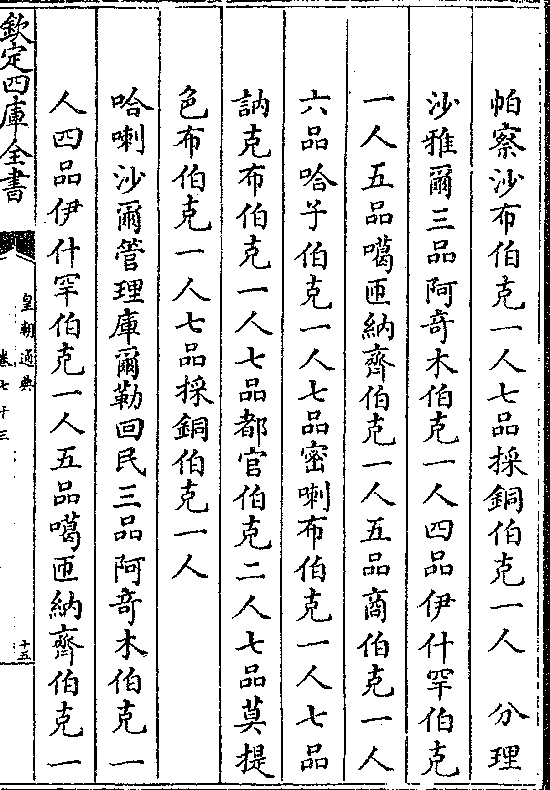 帕察沙布伯克一人七品採銅伯克一人　分理
沙雅爾三品阿竒木伯克一人四品伊什罕伯克
一人五品噶匝納齊伯克一人五品商伯克一人
六品哈子伯克一人七品密喇布伯克一人七品
訥克布伯克一人七品都官伯克二人七品莫提
色布伯克一人七品採銅伯克一人
哈喇沙爾管理庫爾勒回民三品阿竒木伯克一
人四品伊什罕伯克一人五品噶匝納齊伯克一
欽定四庫全書
皇朝通典
卷七十三
十五